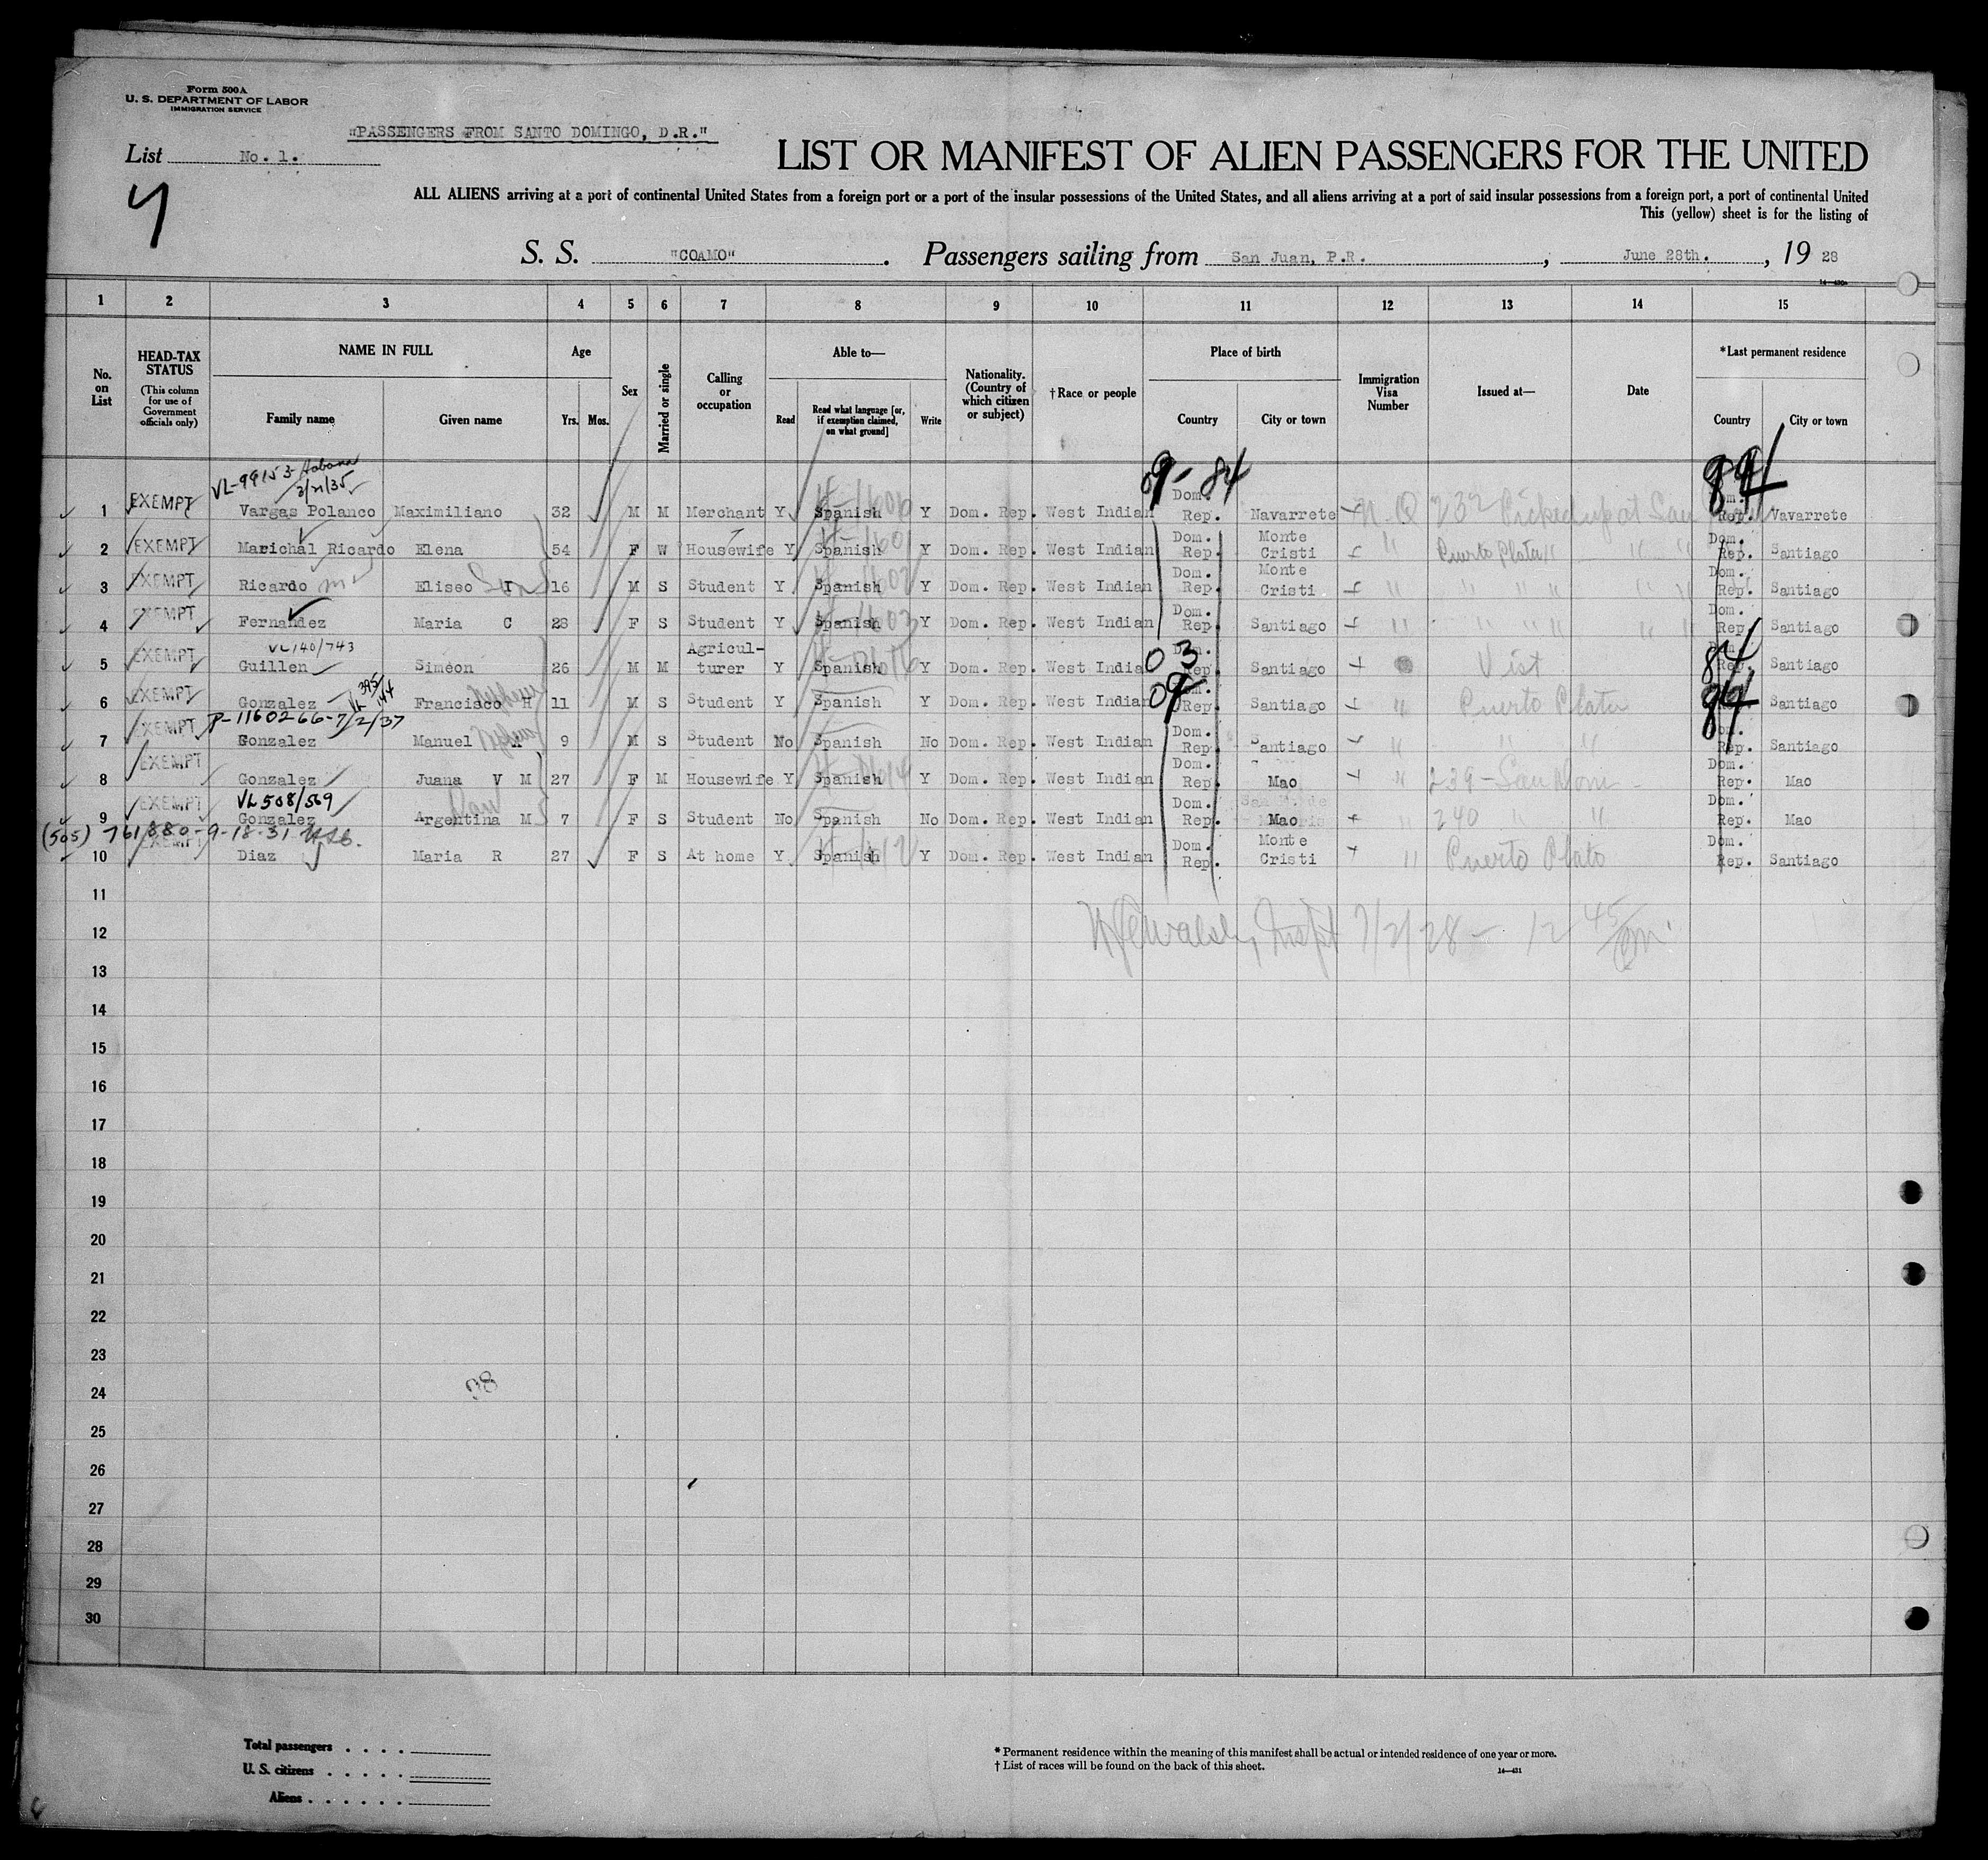 Form 500A
U. S. DEPARTMENT OF LABOR
IMMIGRATION SERVICE
"PASSENGERS FROM SANTO DOMINGO, D.R."
List No. 1.
LIST OR MANIFEST OF ALIEN PASSENGERS FOR THE UNITED
4
ALL ALIENS arriving at a port of continental United States from a foreign port or a port of the insular possessions of the United States, and all aliens arriving at a port of said insular possessions from a foreign port, a port of continental United
This (yellow) sheet is for the listing of
S. S. "COAMO". Passengers sailing from San Juan, P.R., June 28th., 19 28
14—430
1 2 3 4 5 6 7 8 9 10 11 12 13 14 15
No. on List
HEAD-TAX STATUS
(This column for use of Government officials only)
NAME IN FULL
Family name Given name
Age
Yrs. Mos.
Sex
Married or single
Calling or occupation
Able to—
Read Read what language [or, if exemption claimed, on what ground] Write
Nationality. (Country of which citizen or subject)
†Race or people
Place of birth
Country City or town
Immigration Visa Number
Issued at—
Date
*Last permanent residence
Country City or town
VL-99153 3/21/35
9-84 84
1 EXEMPT Vargas Polanco Maximiliano 32 M M Merchant Y Spanish Y Dom. Rep. West Indian Dom. Rep. Navarrete N.Q 232 Picked up at San Dom. Rep. Vavarrete
2 EXEMPT Marichal Ricardo Elena 54 F W Housewife Y Spanish Y Dom. Rep. West Indian Dom. Rep. Monte Cristi " Puerto Plata " " " Dom. Rep. Santiago
3 EXEMPT Ricardo Eliseo I Son 16 M S Student Y Spanish Y Dom. Rep. West Indian Dom. Rep. Monte Cristi " " " " " " Dom. Rep. Santiago
4 EXEMPT Fernandez Maria C 28 F S Student Y Spanish Y Dom. Rep. West Indian Dom. Rep. Santiago " " " " " " Dom. Rep. Santiago
VL140/743
5 EXEMPT Guillen Simeon 26 M M Agricul-turer Y Spanish Y Dom. Rep. West Indian 03 Dom. Rep. Santiago Vist 84 Dom. Rep. Santiago
VL 395/144
6 EXEMPT Gonzalez Francisco H Nephew 11 M S Student Y Spanish Y Dom. Rep. West Indian 09 Dom. Rep. Santiago " Puerto Plata 84 Dom. Rep. Santiago
P-1160266-7/2/37
7 EXEMPT Gonzalez Manuel A Nephew 9 M S Student No Spanish No Dom. Rep. West Indian Dom. Rep. Santiago " " " Dom. Rep. Santiago
8 EXEMPT Gonzalez Juana V M 27 F M Housewife Y Spanish Y Dom. Rep. West Indian Dom. Rep. Mao " 239-San Dom Dom. Rep. Mao
VL508/569
9 EXEMPT Gonzalez Argentina M Dau 7 F S Student No Spanish No Dom. Rep. West Indian Dom. Rep. Mao " 240 " " Dom. Rep. Mao
(505) 761880-9-18-31
10 EXEMPT Diaz Maria R 27 F S At home Y Spanish Y Dom. Rep. West Indian Dom. Rep. Monte Cristi " Puerto Plato Dom. Rep. Santiago
11
12 Walsh, Inspt 7/2/28 - 12 45/
13
14
15
16
17
18
19
20
21
22
23
24 38
25
26
27
28
29
30
Total passengers
U. S. citizens
Aliens
* Permanent residence within the meaning of this manifest shall be actual or intended residence of one year or more.
† List of races will be found on the back of this sheet.
14—431